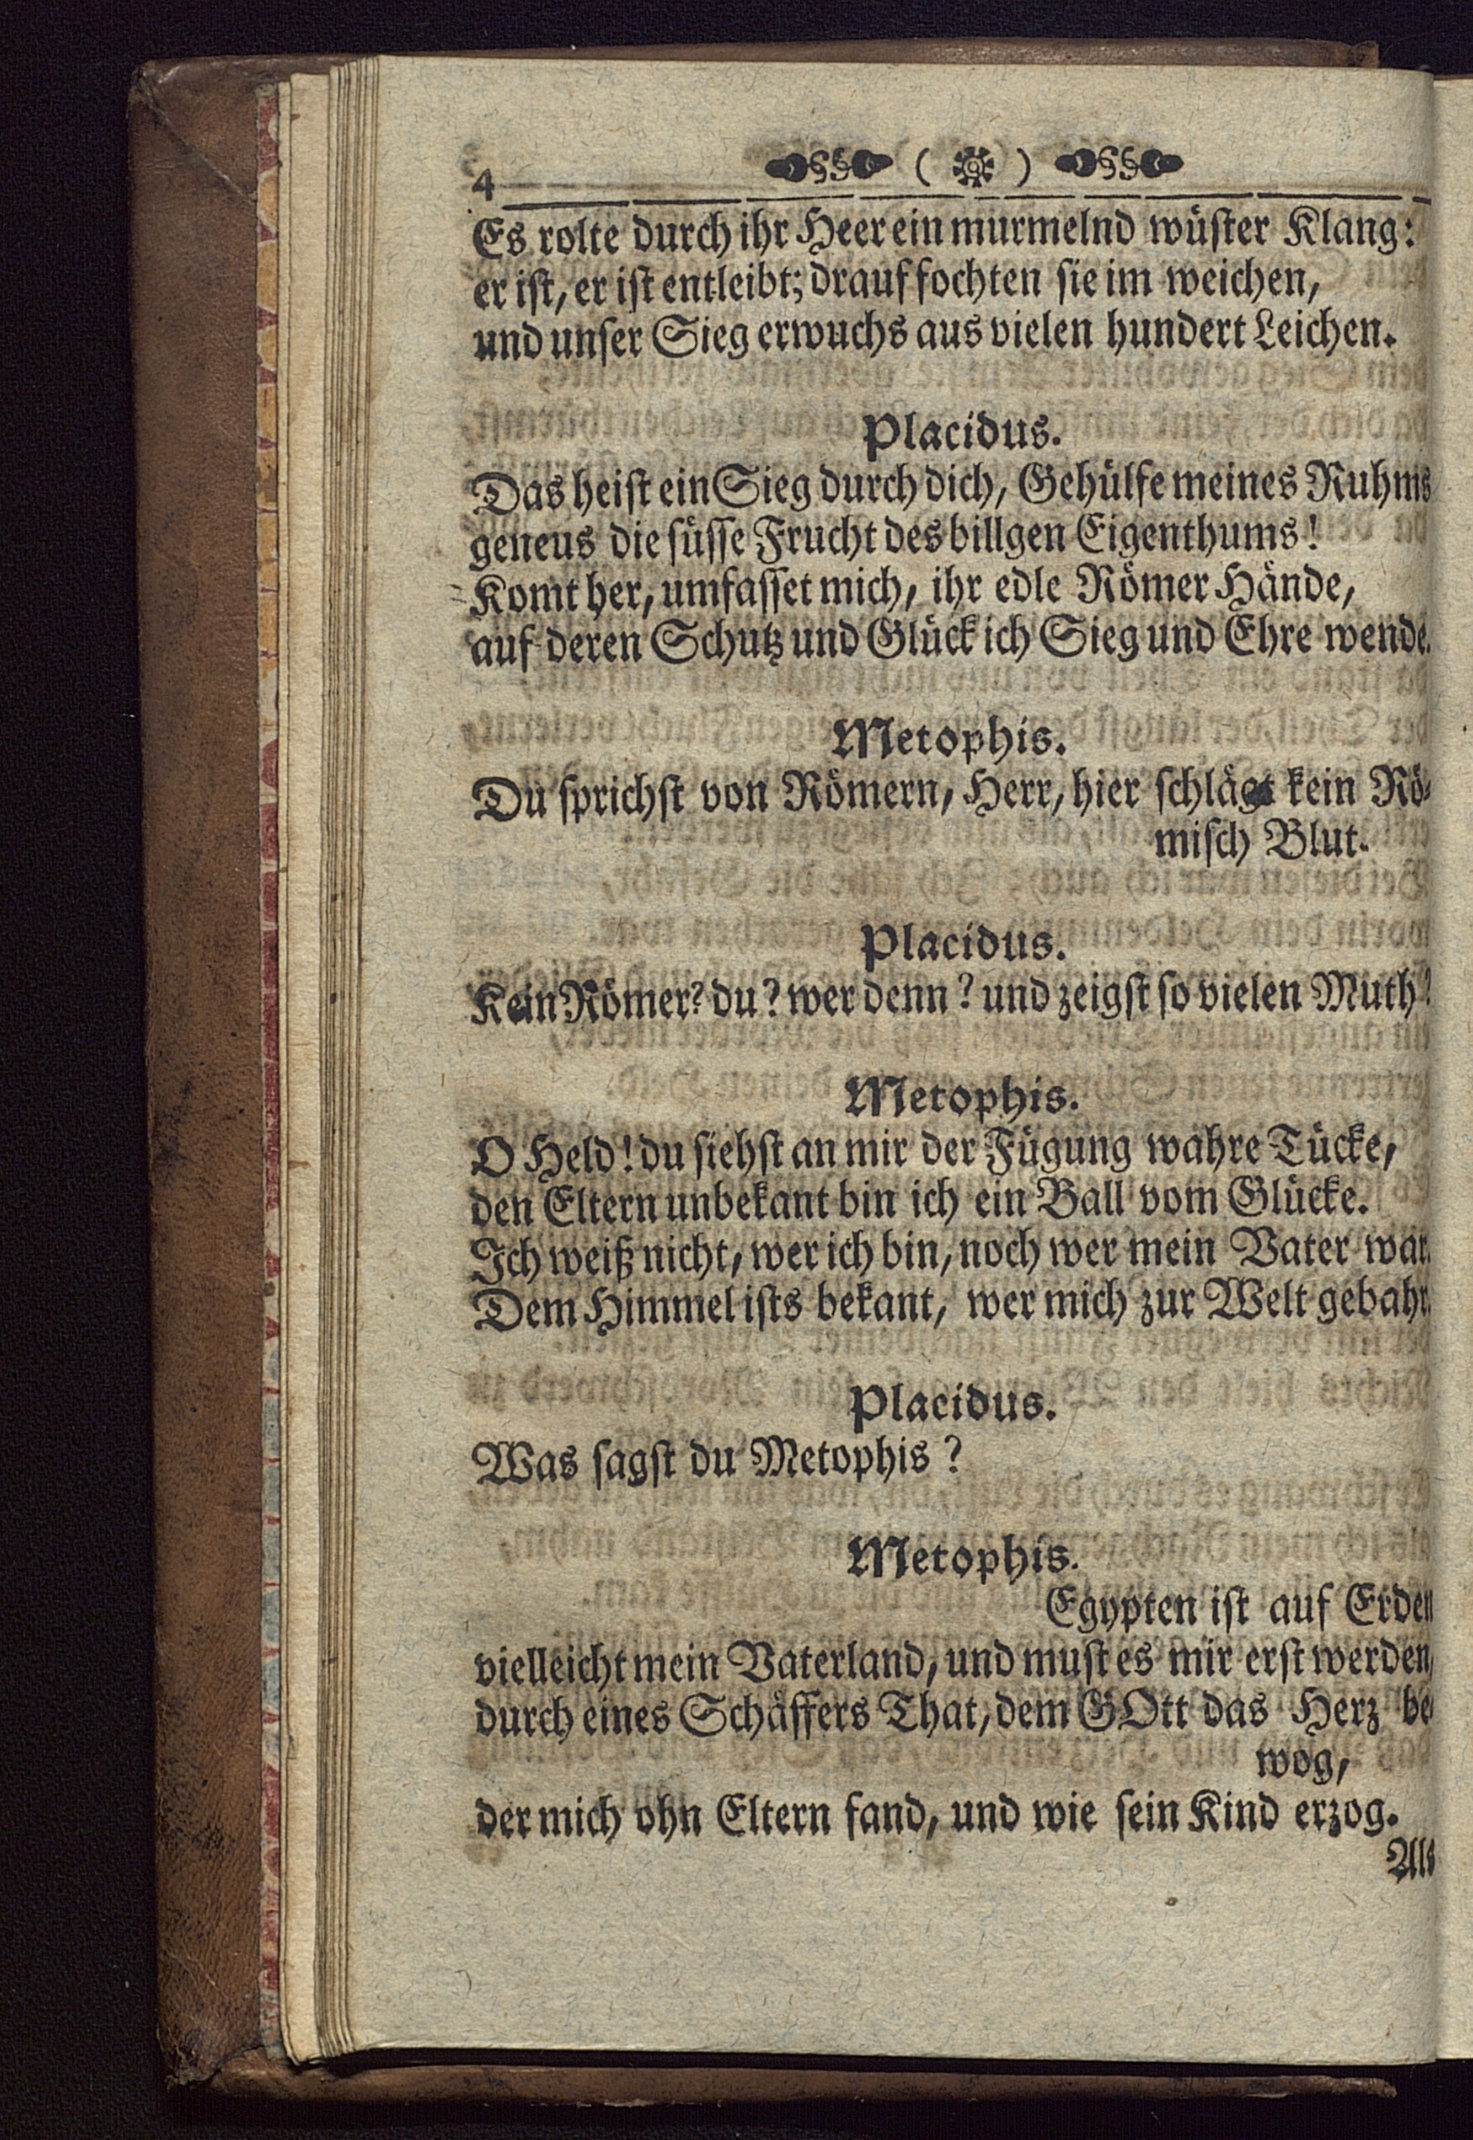 4
Es rolte durch ihr Heer ein murmelnd wüster Klang:
er ist, er ist entleibt; drauf fochten sie im weichen,
und unser Sieg erwuchs aus vielen hundert Leichen.
Placidus.
Das heist ein Sieg durch dich, Gehülfe meines Ruhms
geneus die süsse Frucht des billgen Eigenthums!
Komt her, umfasset mich, ihr edle Römer Hände,
auf deren Schutz und Glück ich Sieg und Ehre wende.
Metophis.
Du sprichst von Römern, Herr, hier schlägt kein Rö-
misch Blut.
Placidus.
Kein Römer? du? wer denn? und zeigst so vielen Muth?
Metophis.
O Held! du siehst an mir der Fügung wahre Tücke,
den Eltern unbekant bin ich ein Ball vom Glücke.
Ich weiß nicht, wer ich bin, noch wer mein Vater war.
Dem Himmel ists bekant, wer mich zur Welt gebahr.
Placidus.
Was sagst du Metophis?
Metophis.
Egypten ist auf Erden
vielleicht mein Vaterland, und must es mir erst werden,
durch eines Schäffers That, dem GOtt das Herz be-
wog,
der mich ohn Eltern fand, und wie sein Kind erzog.
Als